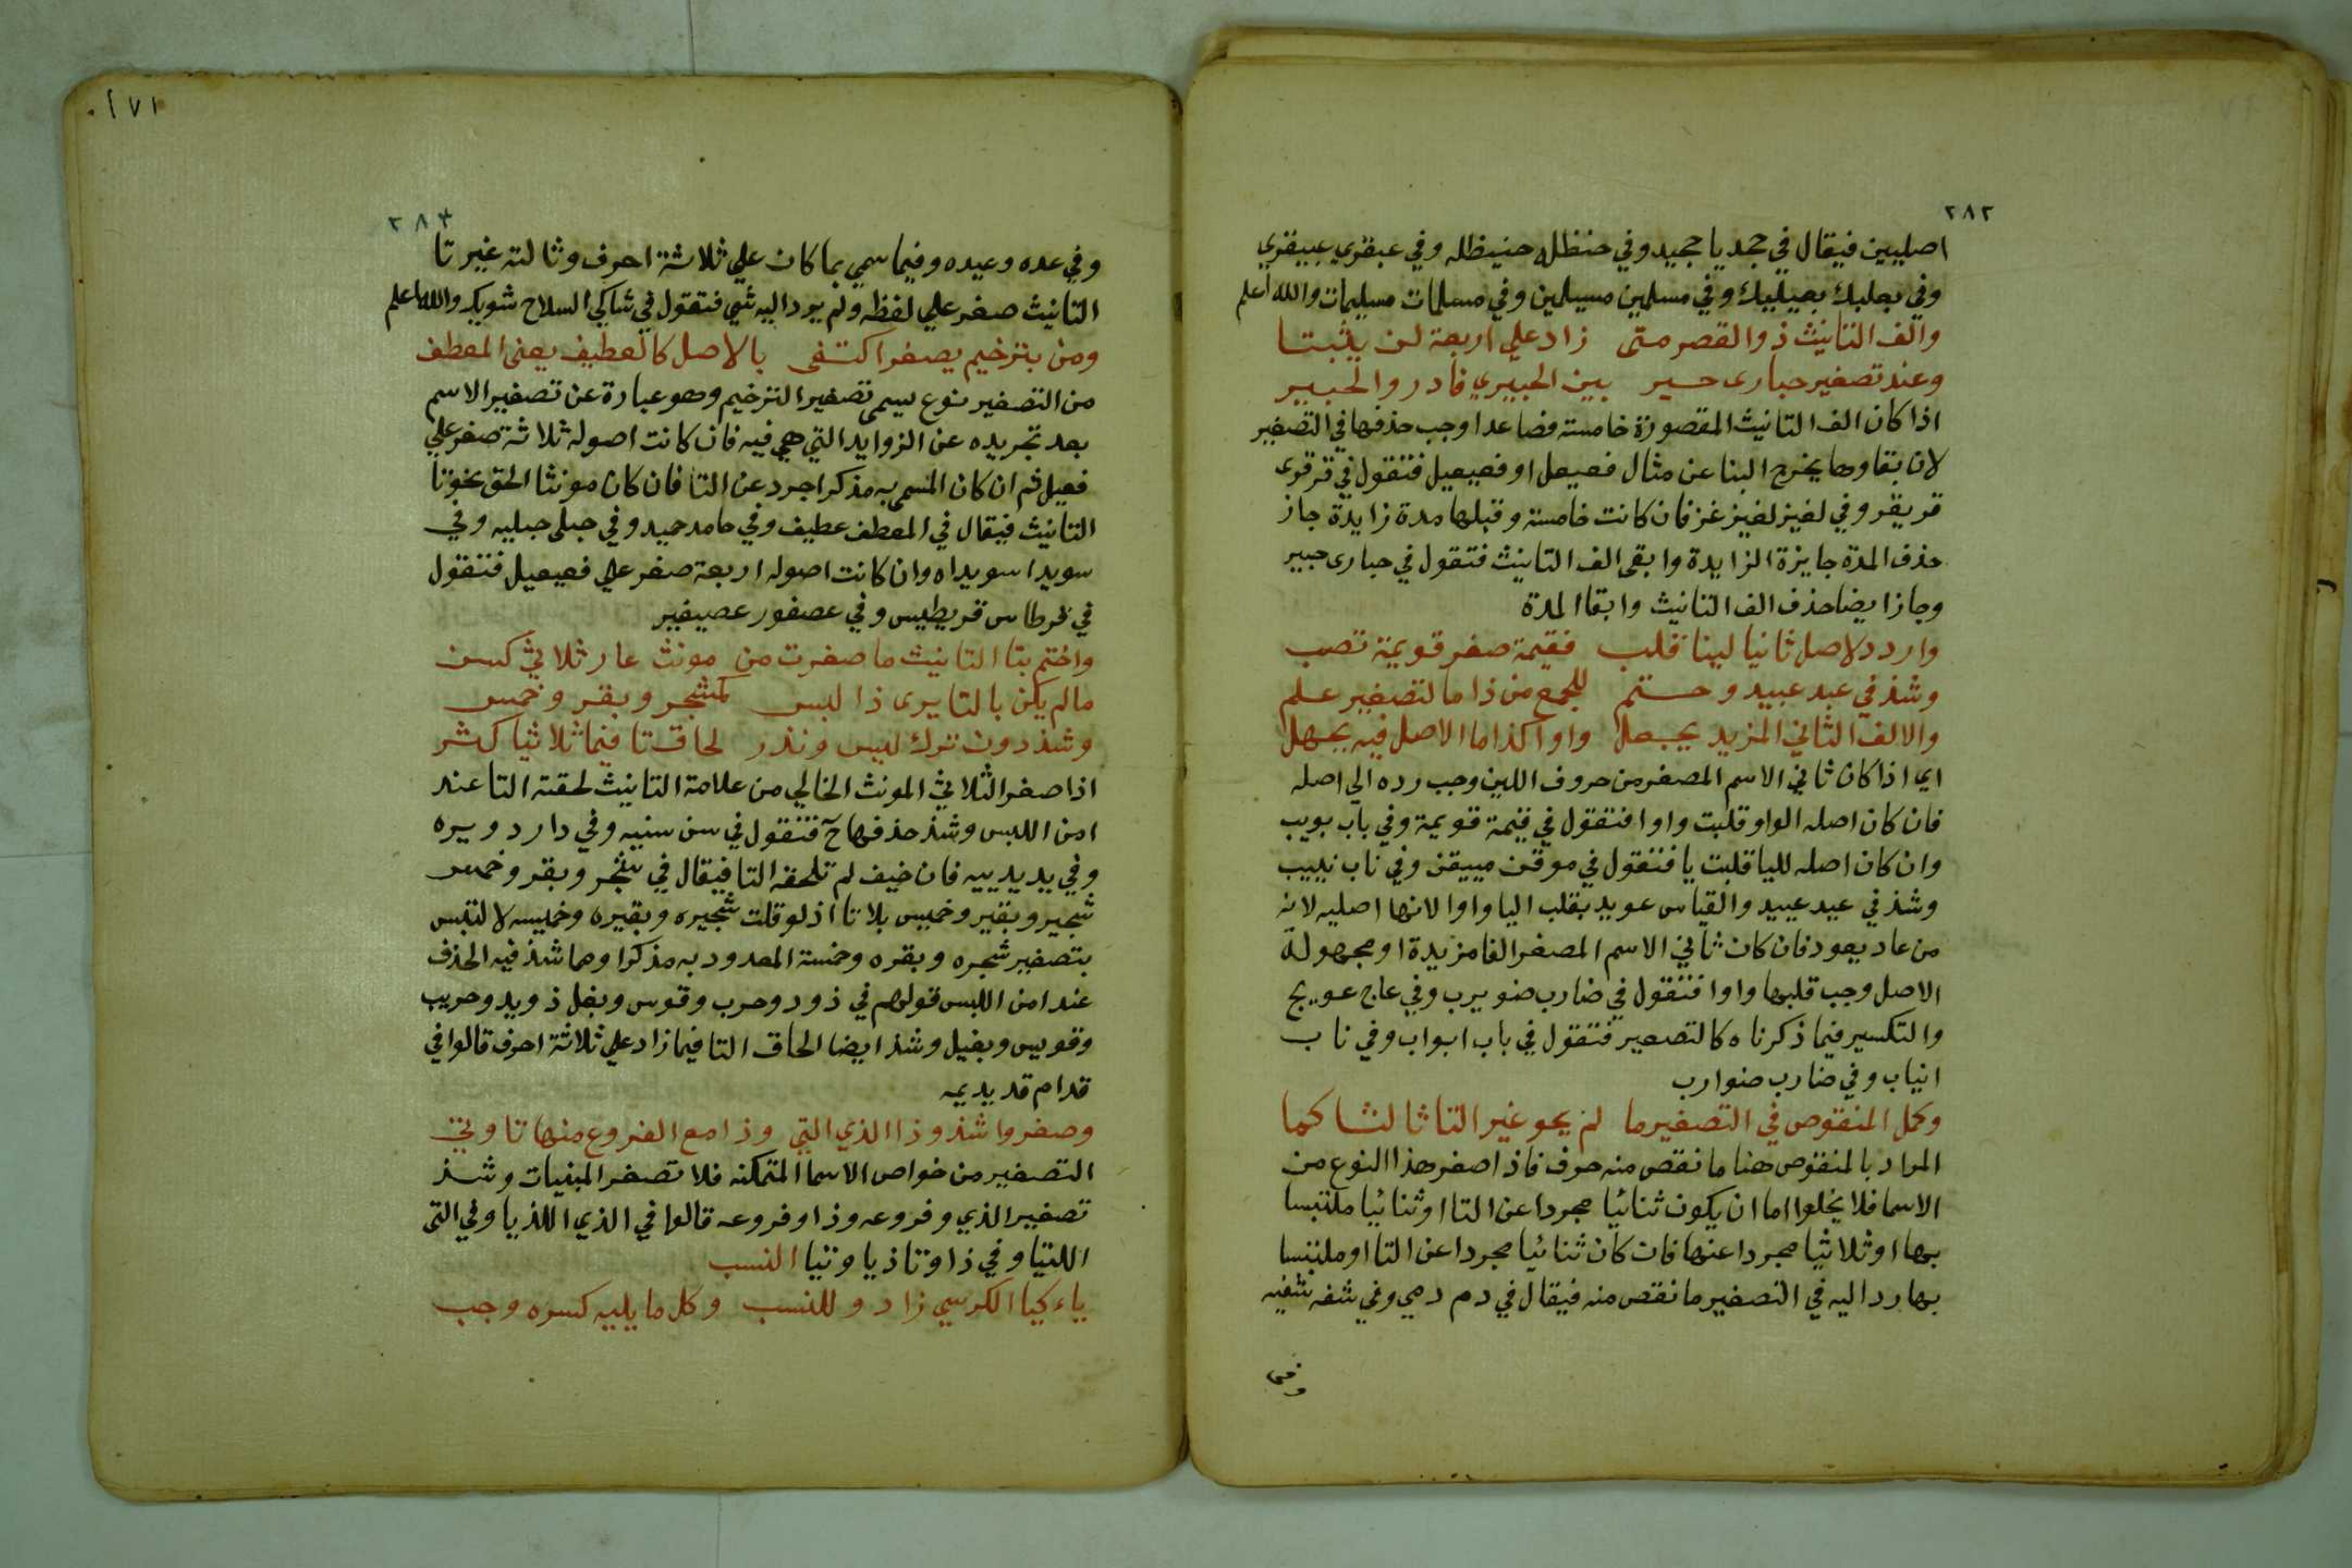 ٢٨٢
اصليين فيقال في جحد يا جحيد وفي حنظله حنيظله وفي عبقري عبيقري
وفي بعلبك بعيلبك وفي مسلمين مسيلمين وفي مسلمات مسيلمات والله اعلم
والف التانيث ذو القصر متى زاد علي اربعة لن يثبتا
وعند تصغير حبارى خير بين الحبيري فادر والحبير
اذا كان الف التانيث المقصورة خامسته فصاعدا وجب حذفها في التصغير
لان بقاوها يخرج البنا عن مثال فعيعل او فعيعيل فتقول في قرقرى
قريقر وفي لغيز لغيز غز فان كانت خامسة وقبلها مدة زايدة جاز
حذف المدة جايزة الزايدة وابقى الف التانيث فتقول في حبارى حبير
وجاز ايضا حذف الف التانيث وابقا المدة
واردد لاصل ثانيا لينا قلب فقيمة صغر قويمة تصب
وشذ في عبد عبيد وحتم للجمع من ذا ما لتصغير علم
والالف الثاني المزيد يجعل واوا كذا ما الاصل فيه يجهل
اي اذا كان ثاني الاسم المصغر من حروف اللين وجب رده الي اصله
فان كان اصله الواو قلبت واوا فتقول في قيمة قويمة وفي باب بويب
وان كان اصله لليا قلبت يا فتقول في موقن مييقن وفي ناب نييب
وشذ في عيد عييد والقياس عويد بقلب اليا واوا لانها اصليه لانه
من عاد يعود فان كان ثاني الاسم المصغر الفا مزيدة او مجهولة
الاصل وجب قلبها واوا فتقول في ضارب ضويرب وفي عاج عويج
والتكسير فيما ذكرناه كالتصغير فتقول في باب ابواب وفي ناب
انياب وفي ضارب ضوارب
وكمل المنقوص في التصغير ما لم يحو غير التا ثالثا كما
المراد بالمنقوص هنا ما نقص منه حرف فاذا صغر هذا النوع من
الاسما فلا يخلوا اما ان يكون ثنائيا مجردا عن التا او ثنائيا ملتبسا
بها او ثلاثيا مجردا عنها فان كان ثنائيا مجردا عن التا او ملتبسا
بها رد اليه في التصغير ما نقص منه فيقال في دم دمي وفي شفه شفيه
وفي
١٧١
٢٨٣
وفي عده وعيده وفيما سمي بما كان علي ثلاثة احرف وثالثه غير تا
التانيث صغر علي لفظه ولم يرد اليه شي فتقول في شاكي السلاح شويك والله اعلم
ومن بترخيم يصغر اكتفى بالاصل كالعطيف يعنى المعطف
من التصغير نوع يسمى تصغير الترخيم وهو عبارة عن تصغير الاسم
بعد تجريده عن الزوايد التي هي فيه فان كانت اصوله ثلاثة صغر علي
فعيل ثم ان كان المسمي به مذكرا جرد عن التا فان كان مونثا الحق بخوتا
التانيث فيقال في المعطف عطيف وفي حامد حميد وفي حبلى حبليه وفي
سويدا سويداه وان كانت اصوله اربعة صغر علي فعيعيل فتقول
في قرطاس قريطيس وفي عصفور عصيفير
واختم بتا التانيث ما صغرت من مونث عار ثلاثي كسن
مالم يكن بالتا يرى ذا لبس كشجر وبقر وخمس
وشذ دون ترك لبس وندر لحاق تا فيما ثلاثيا كثر
اذا صغر الثلاثي المونث الخالي من علامة التانيث لحقته التا عند
امن اللبس وشذ حذفها ح فتقول في سن سنيه وفي دار دويره
وفي يد يدييه فان خيف لم تلحقه التا فيقال في شجر وبقر وخمس
شجير وبقير وخميس بلا تا اذ لو قلت شجيره وبقيره وخميسه لالتبس
بتصغير شجره وبقره وخمسة المعدود به مذكرا ومما شذ فيه الحذف
عند امن اللبس قولهم في ذود وحرب وقوس وبغل ذويد وحريب
وقويس وبغيل وشذ ايضا الحاق التا فيما زاد علي ثلاثة احرف قالوا في
قدام قديديمه
وصغروا شذوذا الذي التي وذا مع الفروع منها تا وتي
التصغير من خواص الاسما المتمكنه فلا تصغر المبنيات وشذ
تصغير الذي وفروعه وذا وفروعه قالوا في الذي اللذيا وفي التي
اللتيا وفي ذا وتا ذيا وتيا النسب
ياء كيا الكرسي زادو للنسب وكل ما يليه كسره وجب